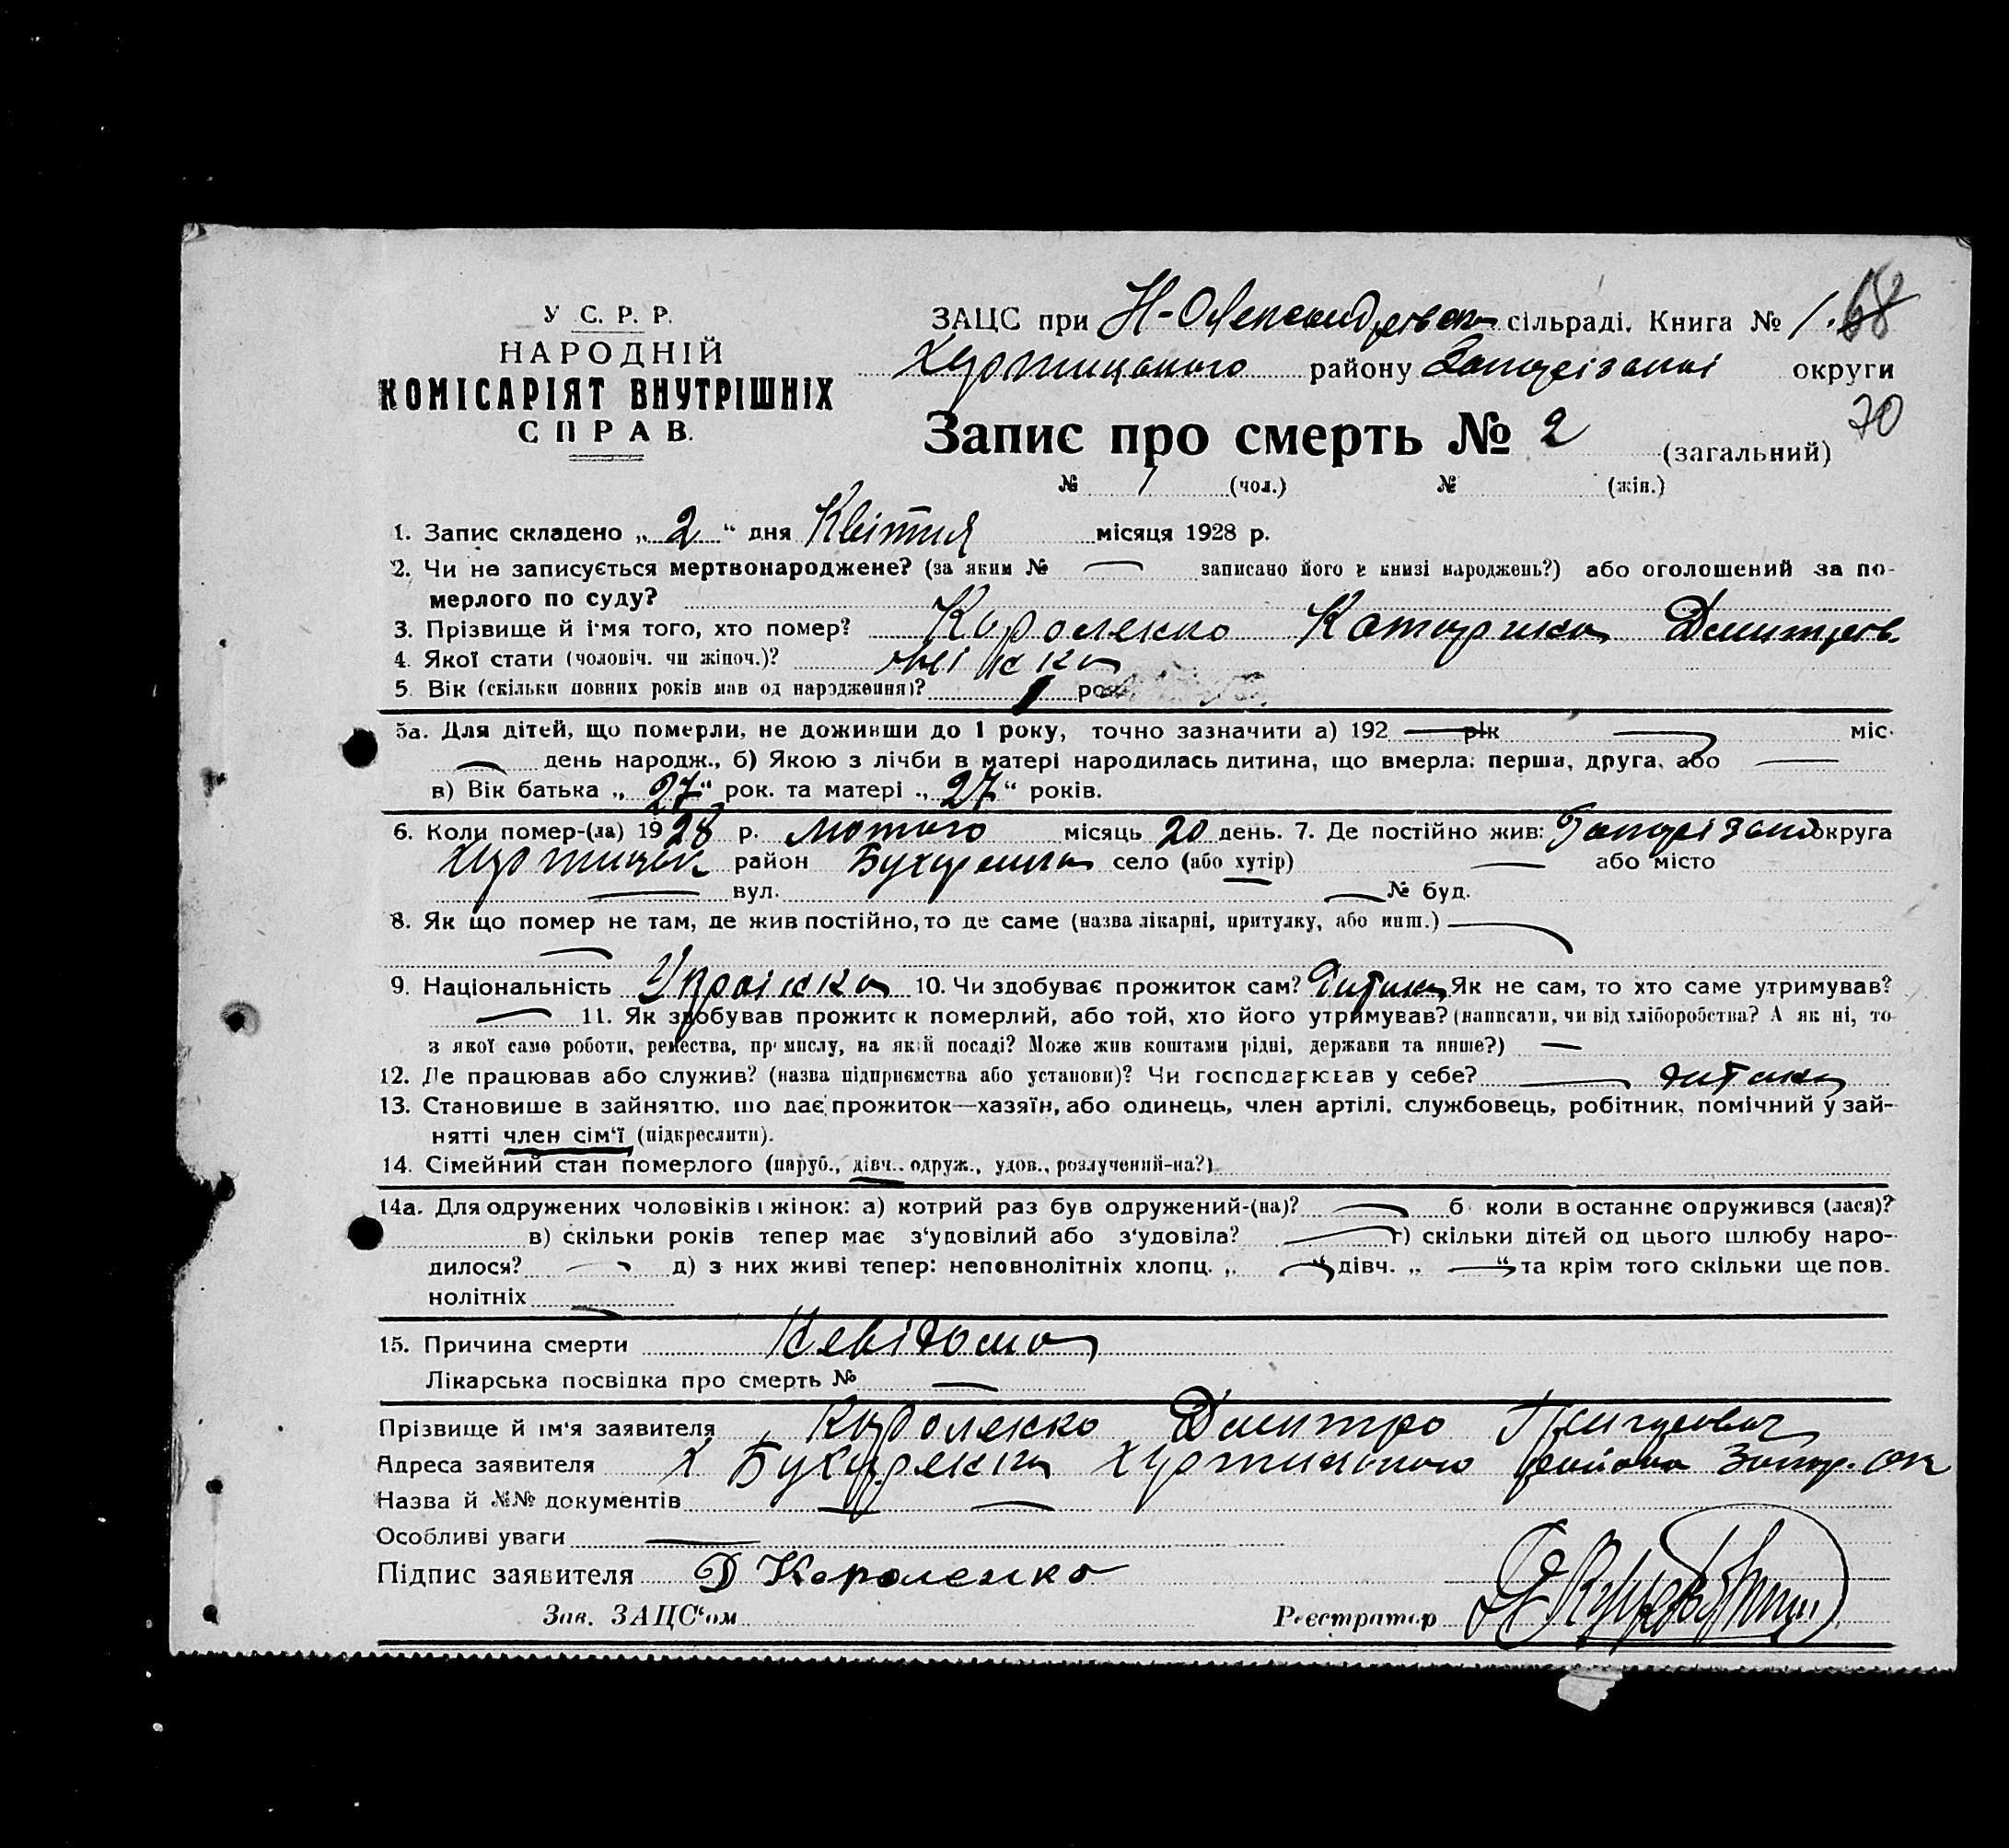 У С. Р. Р.
НАРОДНІЙ
КОМІСАРІЯТ ВНУТРІШНІХ
СПРАВ.
ЗАЦС при Н-Олександрівськ сільраді. Книга № 1. 68
Хортицького району Запорізької округи
70
Запис про смерть № 2 (загальний)
№ 1 (чол.) № (жін.)
1. Запис складено „ 2 “ дня Квітня місяця 1928 р.
2. Чи не записується мертвонароджене? (за яким № — записано його в книзі народжень?) або оголошений за по-
мерлого по суду?
3. Прізвище й ім'я того, хто помер? Короленко Катерина Дмитров
4. Якої статі (чоловіч. чи жіноч.)?
5. Вік (скільки повних років мав од народження)? 1 рок
5а. Для дітей, що померли, не доживши до 1 року, точно зазначити а) 192 — рік — міс.
— день народж., б) Якою з лічби в матері народилась дитина, що вмерла: перша, друга, або —
в) Вік батька „ 27 “ рок. та матері „ 27 “ років.
6. Коли помер-(ла) 1928 р. лютого місяць 20 день. 7. Де постійно жив: Запорізької округа
Хортицьк район село (або хутір) — або місто
— вул. — № буд.
8. Як що помер не там, де жив постійно, то де саме (назва лікарні, притулку, або инш.) —
—
9. Національність Українка 10. Чи здобуває прожиток сам? Дитина Як не сам, то хто саме утримував?
— 11. Як здобував прожиток померлий, або той, хто його утримував? (написати, чи від хліборобства? А як ні, то
з якої саме роботи, ремества, промислу, на якій посаді? Може жив коштами рідні, держави та инше?) —
12. Де працював або служив? (назва підприємства або установи)? Чи господарював у себе? — дитина
13. Становище в зайняттю, що дає прожиток—хазяїн, або одинець, член артілі, службовець, робітник, помічний у зай-
нятті член сім'ї (підкреслити).
14. Сімейний стан померлого (паруб., дівч., одруж., удов., розлучений-на?)
14а. Для одружених чоловіків і жінок: а) котрий раз був одружений-(на)? — б коли в останнє одружився (лася)?
в) скільки років тепер має з'удовілий або з'удовіла? — г) скільки дітей од цього шлюбу наро-
дилося? — д) з них живі тепер: неповнолітніх хлопц. „ — “ дівч. „ — “ та крім того скільки ще пов.
нолітніх —
15. Причина смерти Невідома
Лікарська посвідка про смерть № —
Прізвище й ім'я заявителя Короленко Дмитро Григорович
Адреса заявителя Х Хортицького району Запор. ок
Назва й №№ документів — —
Особливі уваги —
Підпис заявителя Д Короленко
Зав. ЗАЦС'ом Реєстратор